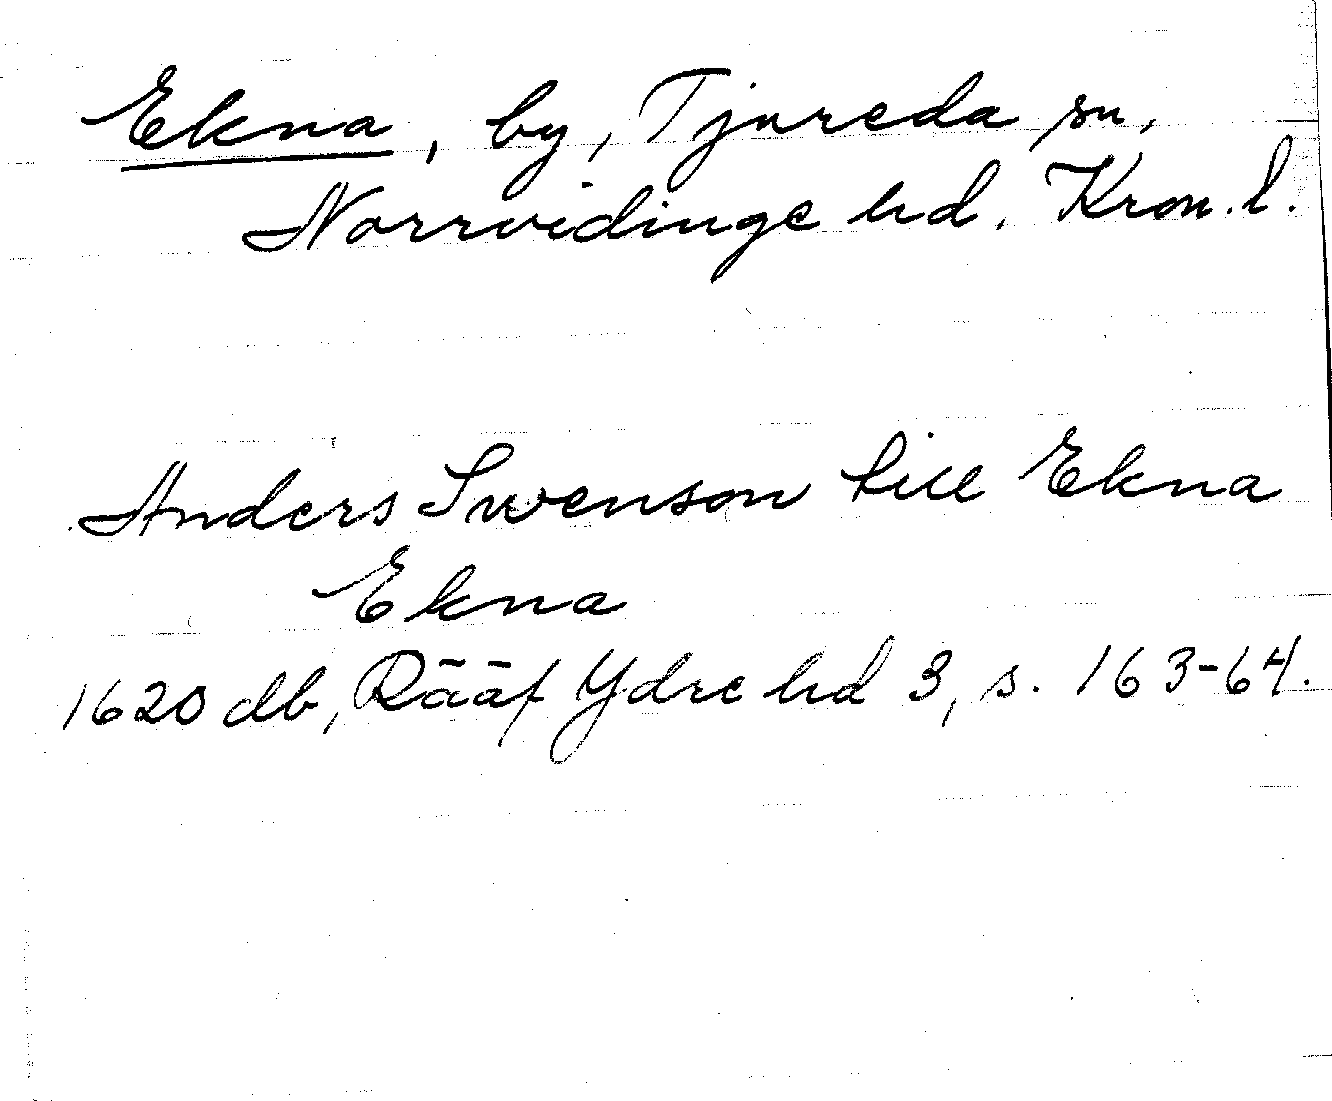 Ekna, by, Tjureda sn,
Norrvidinge hd. Kron. l.
Anders Swenson till Ekna
Ekna
1620 db, Rääf Ydre hd 3, s. 163-64.